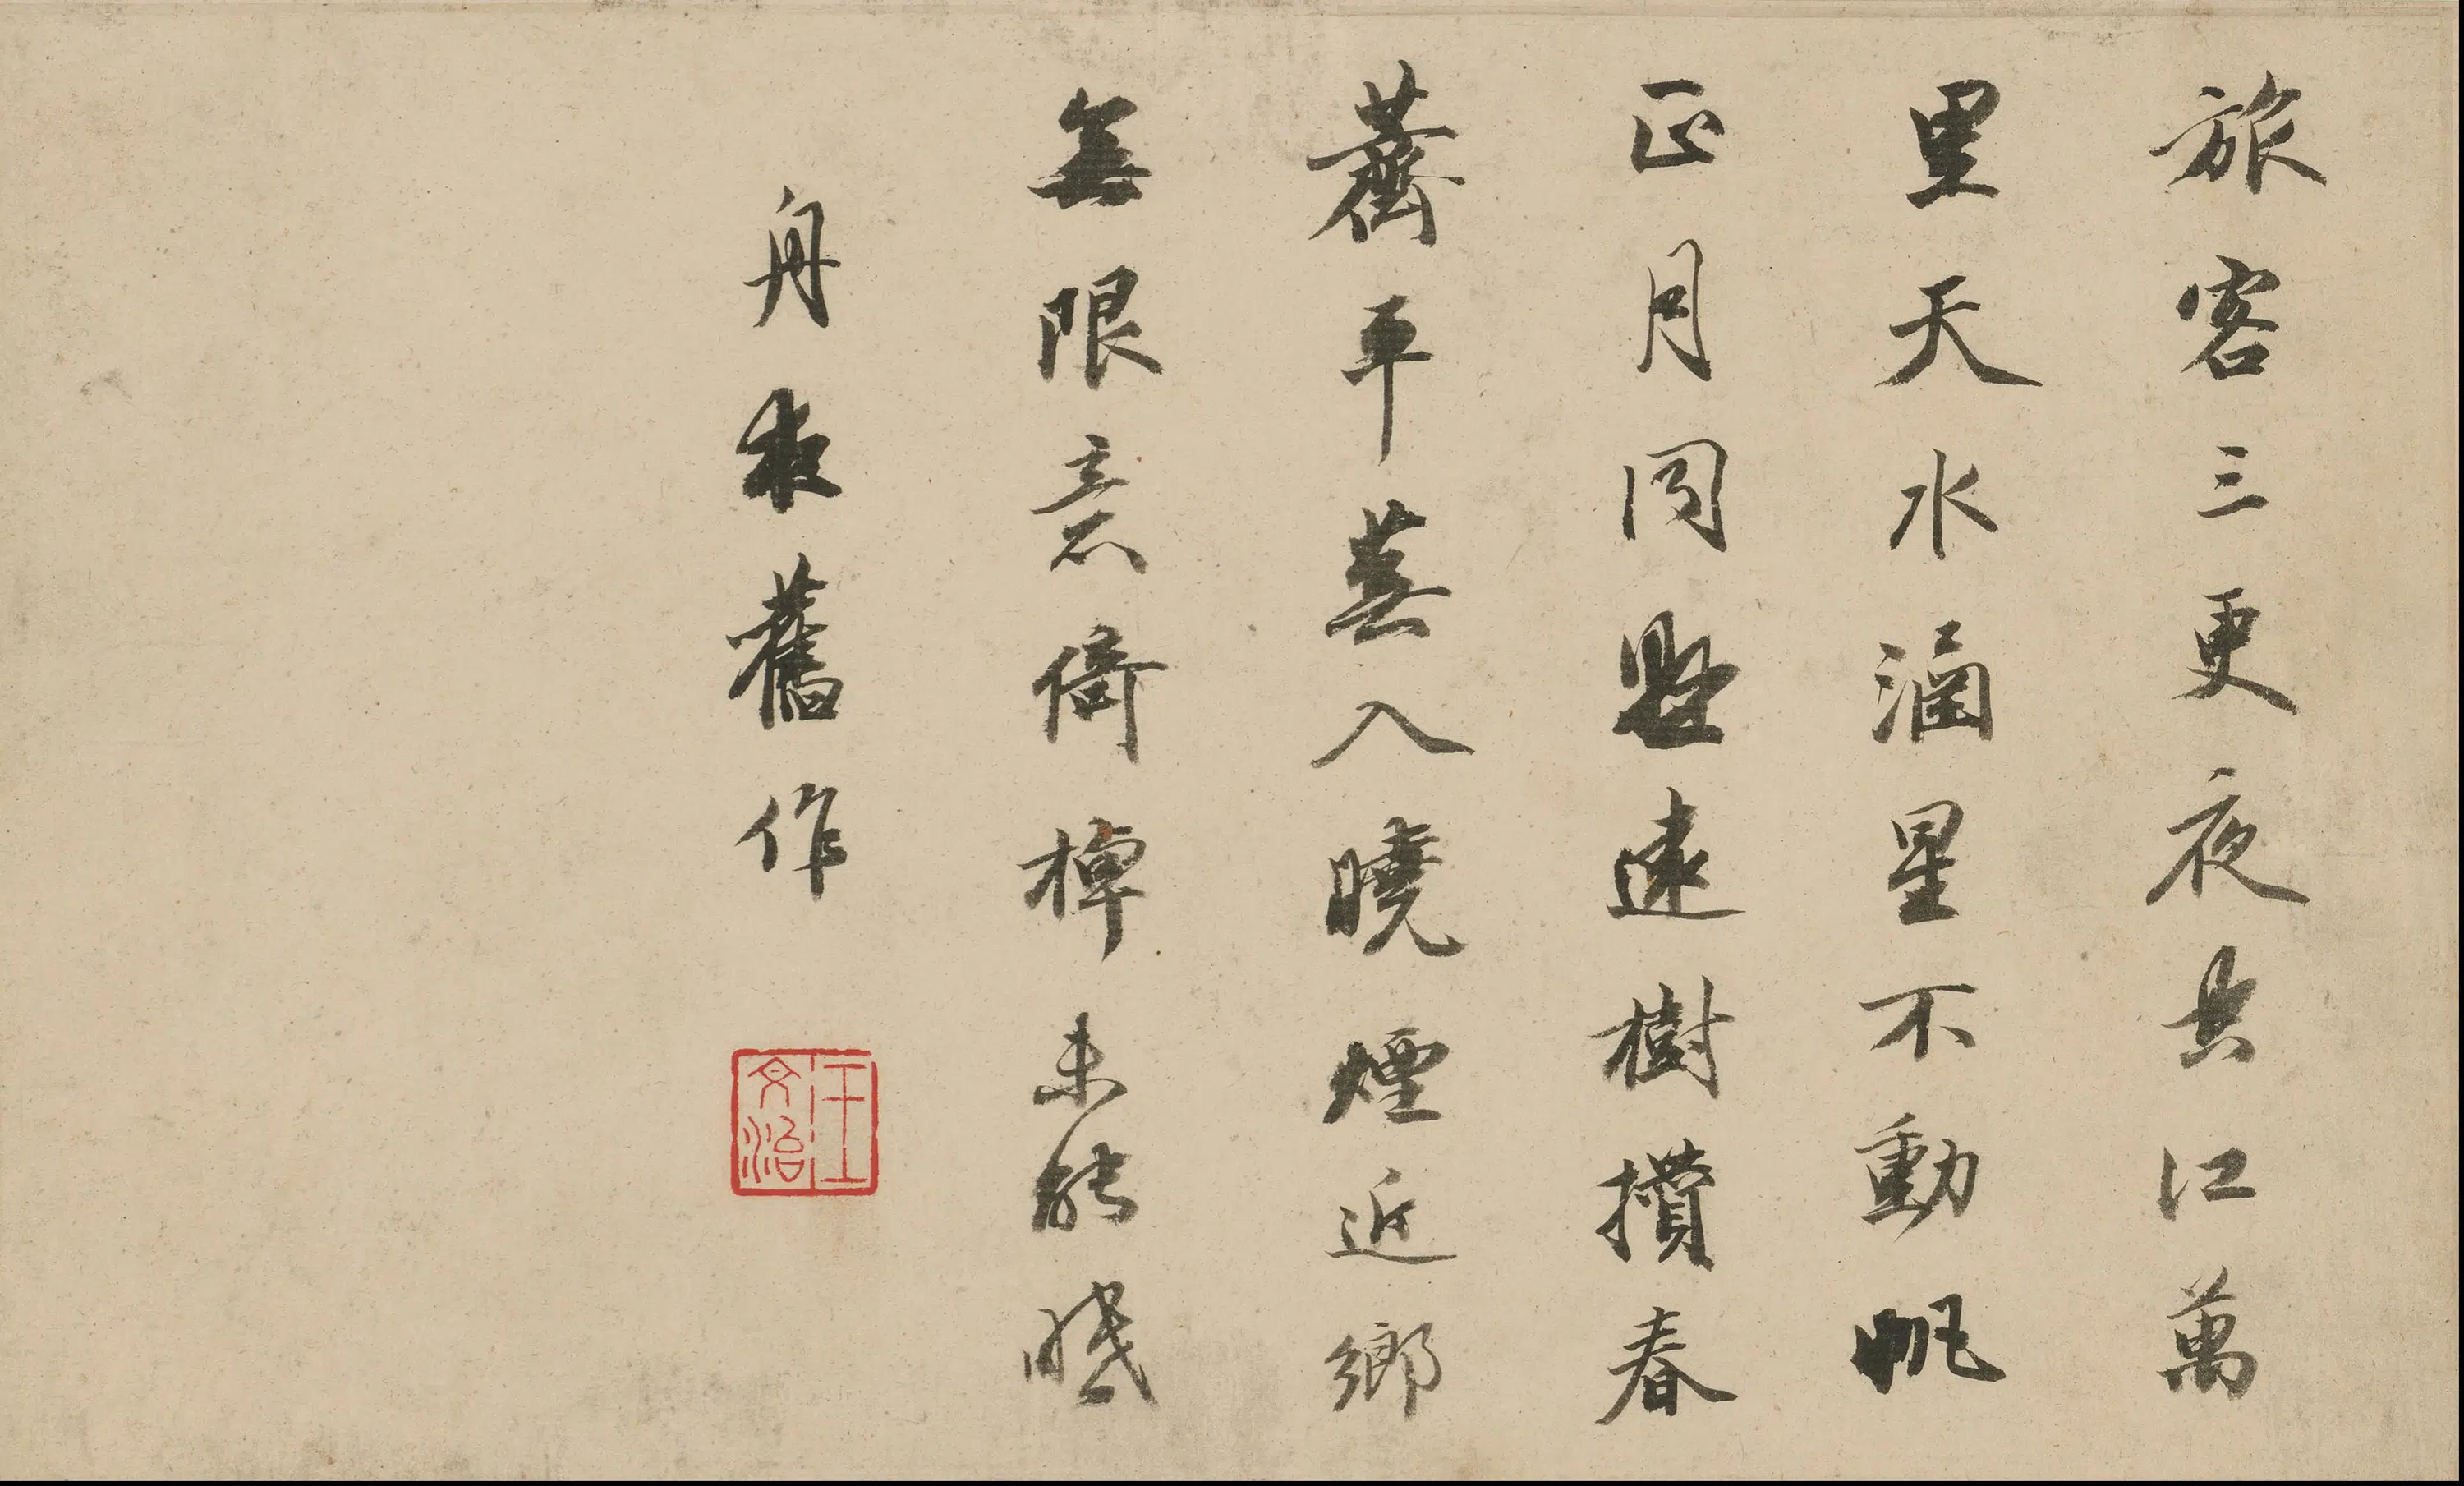 旅客三更夜吴江萬
里天水涵星不動帆
正月同懸遠樹攢春
薺平蕪入曉煙近鄉
無限意倚棹未能眠
舟夜舊作
王文治